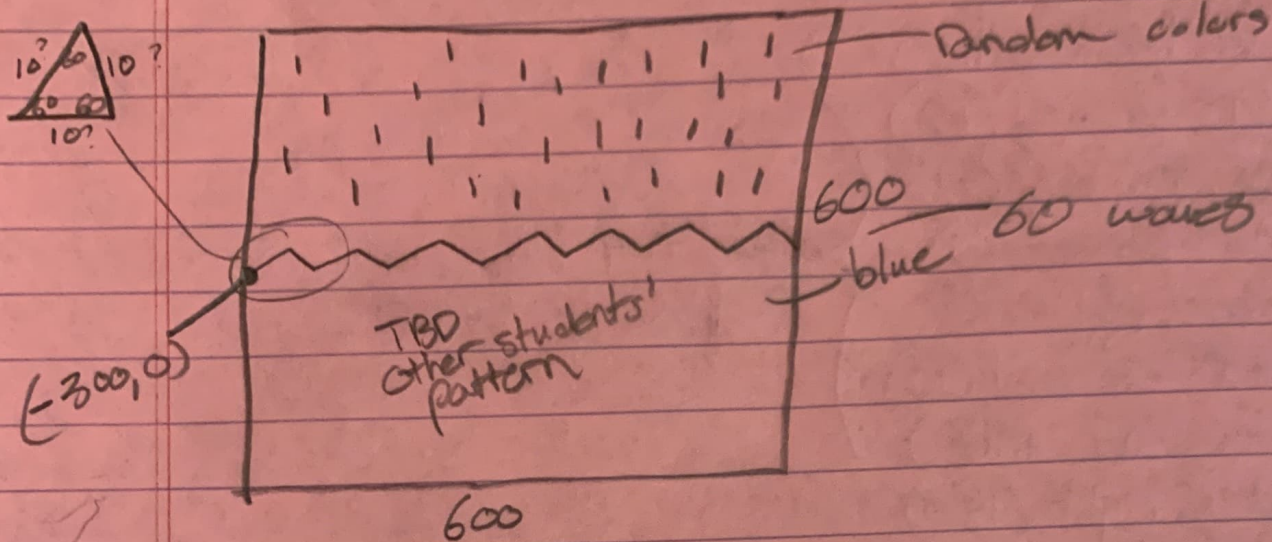 10? 60 10?
60 60
10?
Random colors
600
60 waves
blue
(-300, 0)
TBD
other students'
pattern
600